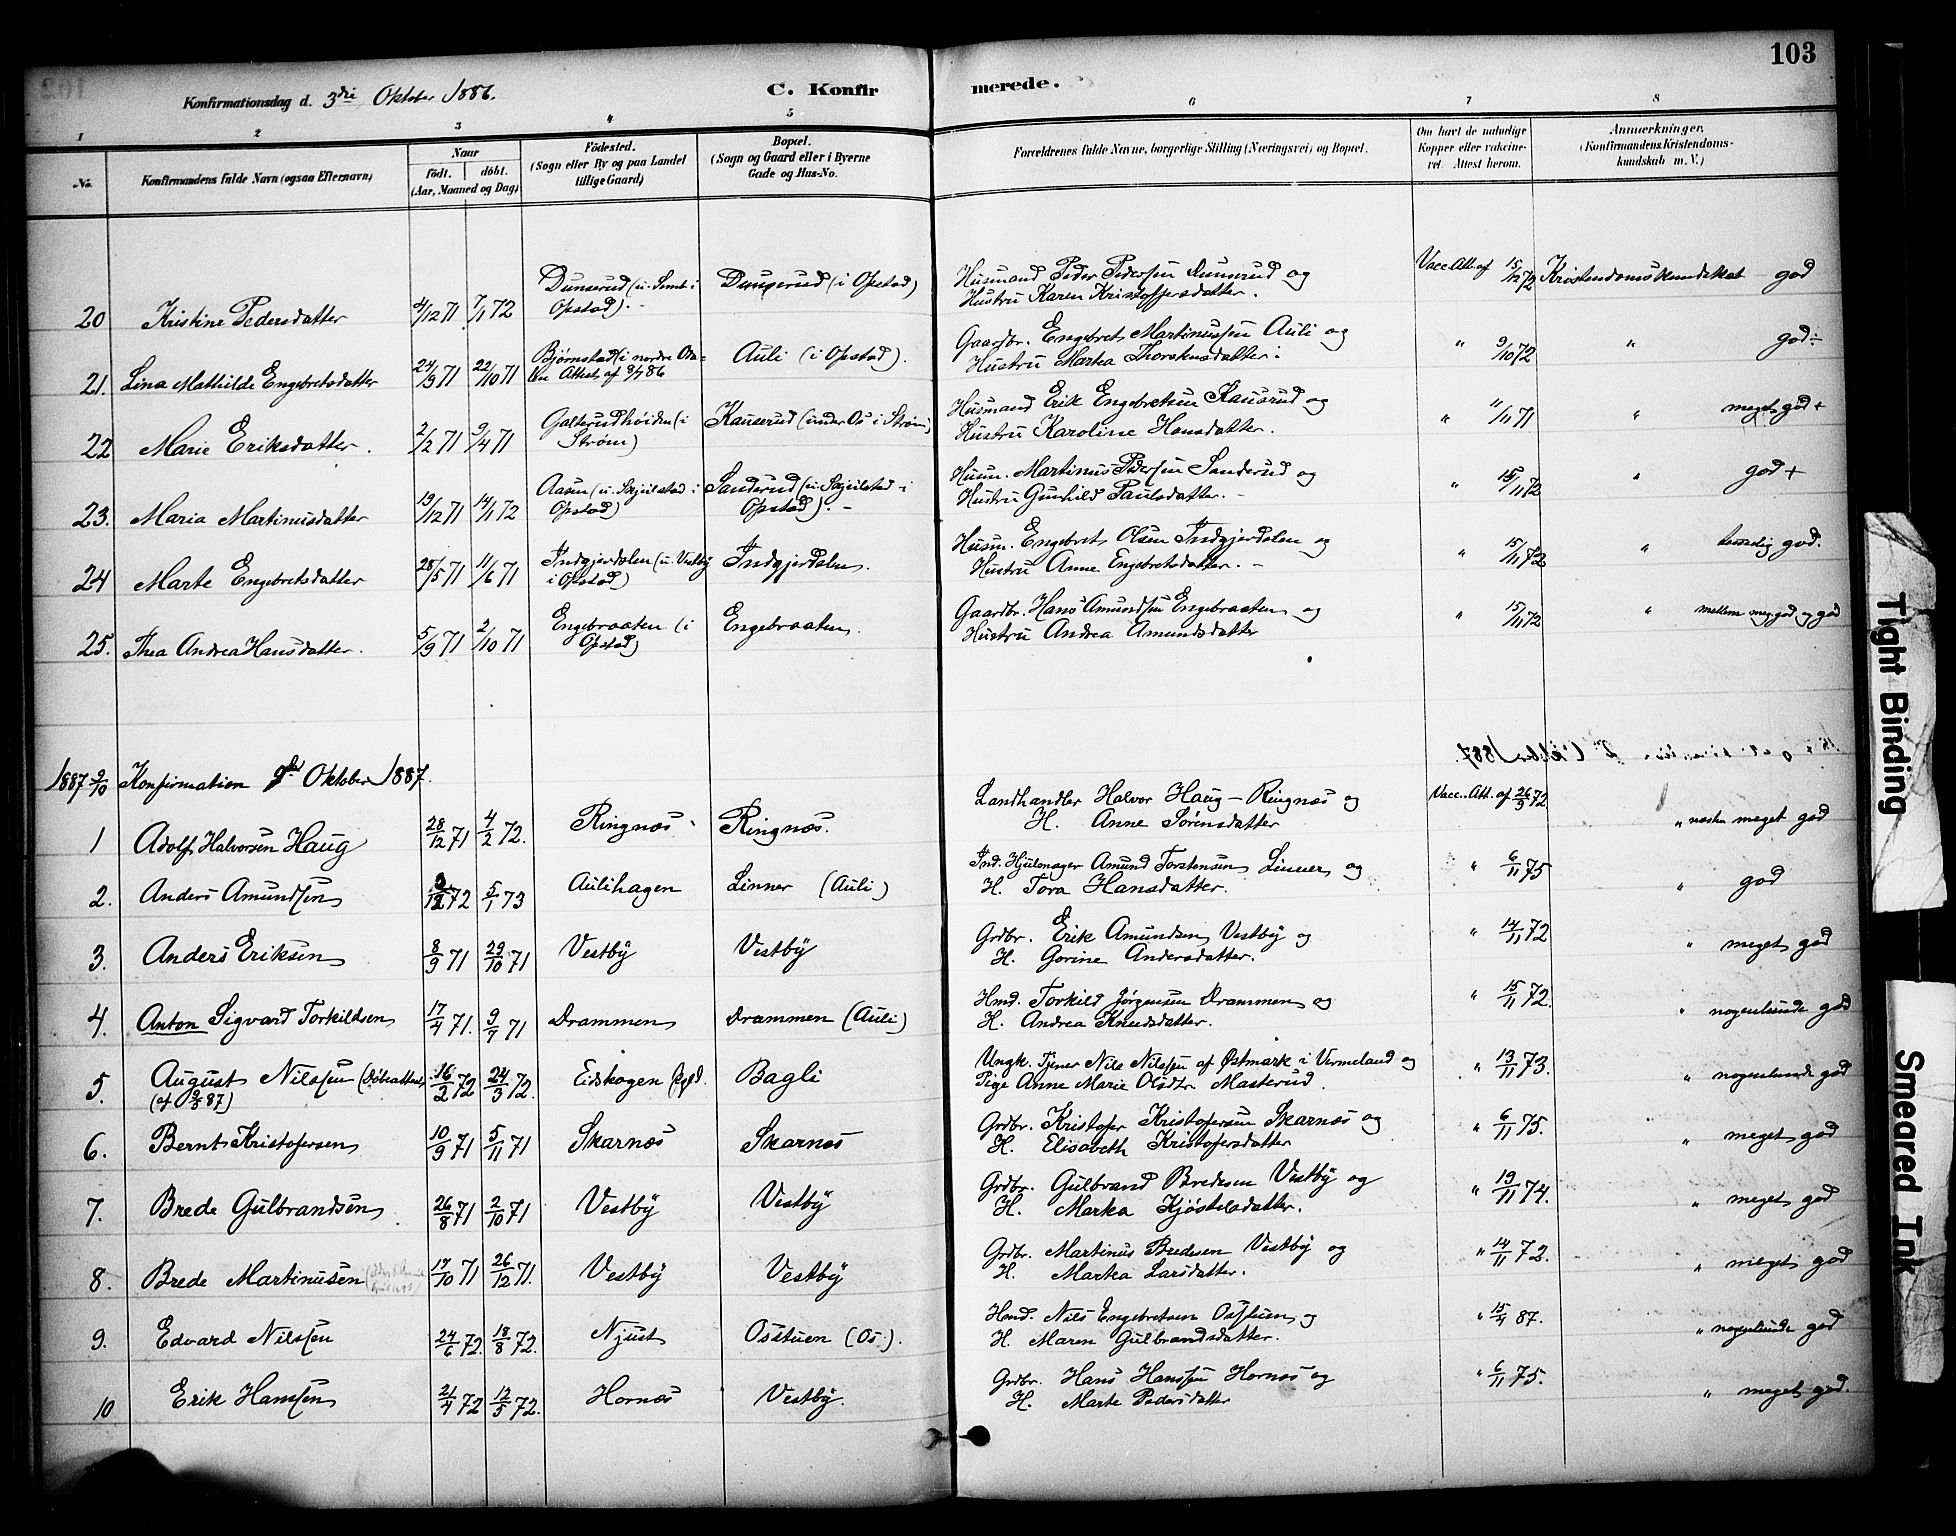 103
Konfirmationsdag d. 3die Oktober 1886.
C. Konfirmerede.
1 2 3 4 5 6 7 8
No.
Konfirmandens fulde Navn (ogsaa Efternavn)
Naar
födt. döbt.
(Aar, Maaned og Dag)
Födested.
(Sogn eller By og paa Landet
tillige Gaard)
Bopæl.
(Sogn og Gaard eller i Byerne
Gade og Hus-No.
Forældrenes fulde Navne, borgerlige Stilling (Næringsvei) og Bopæl.
Om havt de naturlige
Kopper eller vakcine-
ret. Attest herom.
Anmærkninger.
(Konfirmandens Kristendoms-
kundskab m. V.)
20 Kristine Pedersdatter 4/12 71 7/1 72 Dunserud (u. Semb i Opstad). Dungerud (i Opstad) Husmand Peder Pedersen Dunserud og Vacc. Att. af 15/12 72 Kristendomskundskab god
Hustru Karen Kristoffersdatter.
21. Lina Mathilde Engebretsdatter 24/9 71 22/10 71 Bjørnstad (i nordre Odalen Attest af 8/7 86 Auli (i Opstad). Gaardbr. Engebret Martinussen Auli og " 9/10 72 " god÷
Hustru Marka Thorstensdatter.
22 Marie Eriksdatter. 2/2 71 9/4 71 Galterudhøiden (i Strøm) Kauserud (under Os i Strøm) Husmand Erik Engebretsen Kauserud og " 11/11 71 " meget god +
Hustru Karoline Hansdatter.
23. Maria Martinusdatter 19/12 71 14/1 72 Aasen (u. Skjeilstad i Opstad) Sanderud (u. Skjeilstad i Opstad). Husm. Martinus Pedersen Sanderud og " 15/11 72 " god +
Hustru Gunhild Paulsdatter.
24 Marte Engebretsdatter 28/5 71 11/6 71 Indgjerdalen (u. Vestby i Opstad) Indgjerdalen. Husm. Engebret Olsen Indgjerdalen og " 15/11 72 " god.
Hustru Anne Engebretsdatter.
25. Thea Andrea Hansdatter. 5/9 71 2/10 71 Engebraaten (i Opstad) Engebraaten. Gaardbr. Hans Amundsen Engebraaten og " 15/11 72 " mellem meg. god og god
Hustru Andrea Amundsdatter
1887 9/10 Konfirmation 9de Oktober 1887.
1 Adolf Halvorsen Haug 28/12 71 4/2 72. Ringnæs Ringnæs. Landhandler Halvor Haug - Ringnæs og Vacc. Att. af 26/9 72 " næsten meget god
H. Anne Sørensdatter
2. Anders Amundsen 3/12 72 5/1 73 Aulihagen Linner (Auli) Ind. Hjulmager Amund Torstensen Linner og " 6/11 75 " god
H. Tora Hansdatter.
3. Anders Eriksen 8/9 71 29/10 71 Vestby Vestby Grdbr. Erik Amundsen Vestby og " 14/11 72 " meget god
H. Gorine Andersdatter.
4. Anton Sigvard Torkildsen 17/4 71. 9/7 71 Drammen Drammen (Auli) Hmd. Torkild Jørgensen Drammen og " 15/11 72. " nogenlunde god
H. Andrea Knudsdatter.
5. August Nilssen (Døbeattest 16/2 72 24/3 72. Eidskogen Bagli Ungk. Tjener Nils Nilssen af Østmark i Vermeland og " 13/11 73. " nogenlunde god
(af 9/3 87) Pige Anne Marie Olsdtr Masterud.
6. Bernt Kristofersen 10/9 71 5/11 71 Skarnæs Skarnæs Grdbr. Kristofer Kristofersen Skarnæs og " 6/11 75. " meget god
H. Elisabeth Kristofersdatter
7. Brede Gulbrandsen 26/8 71 2/10 71 Vestby Vestby Grdbr. Gulbrand Bredesen Vestby og " 19/11 74. " meget god
H. Marka Kjøstelsdatter.
8. Brede Martinusen 17/10 71 26/12 71. Vestby Vestby Grdbr. Martinus Bredesen Vestby og " 14/11 72. " meget god
H. Marka Larsdatter.
9. Edvard Nilssen 24/6 72. 18/8 72. Njust Osstuen (Os.). Hmd. Nils Engebretsen Osstuen og " 15/4 87. " nogenlunde god
H. Maren Gulbrandsdatter.
10 Erik Hanssen 21/4 72 12/5 72. Hornæs Vestby. Grdbr. Hans Hanssen Hornæs og " 6/11 75. " meget god.
H. Marte Pedersdatter
Tight Binding
Smeared Ink